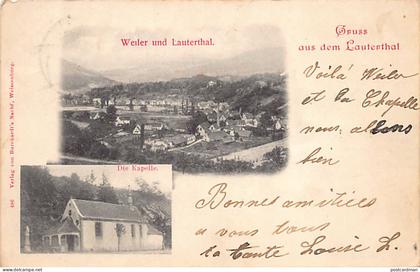 Weiler und Lauterthal.
Gruss
aus dem Lauterthal
Voilà Weiler
et la Chapelle
nous allons
bien
Die Kapelle.
Bonnes amitiés
a vous tous
la tante Louise L.
486 Verlag von Burckardt's Nachf., Weissenburg.
© postcardman